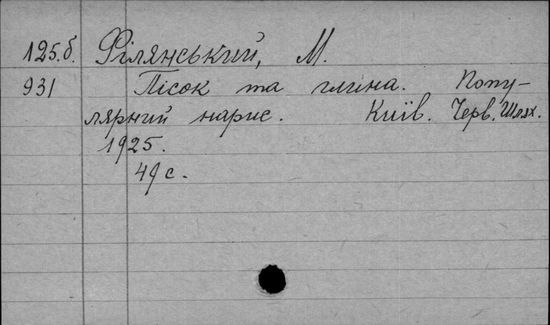 125.б. Філянський, М.
931 Пісок та глина. Попу-
лярний нарис. Київ. Черв. Шлях.
1925.
49 с.